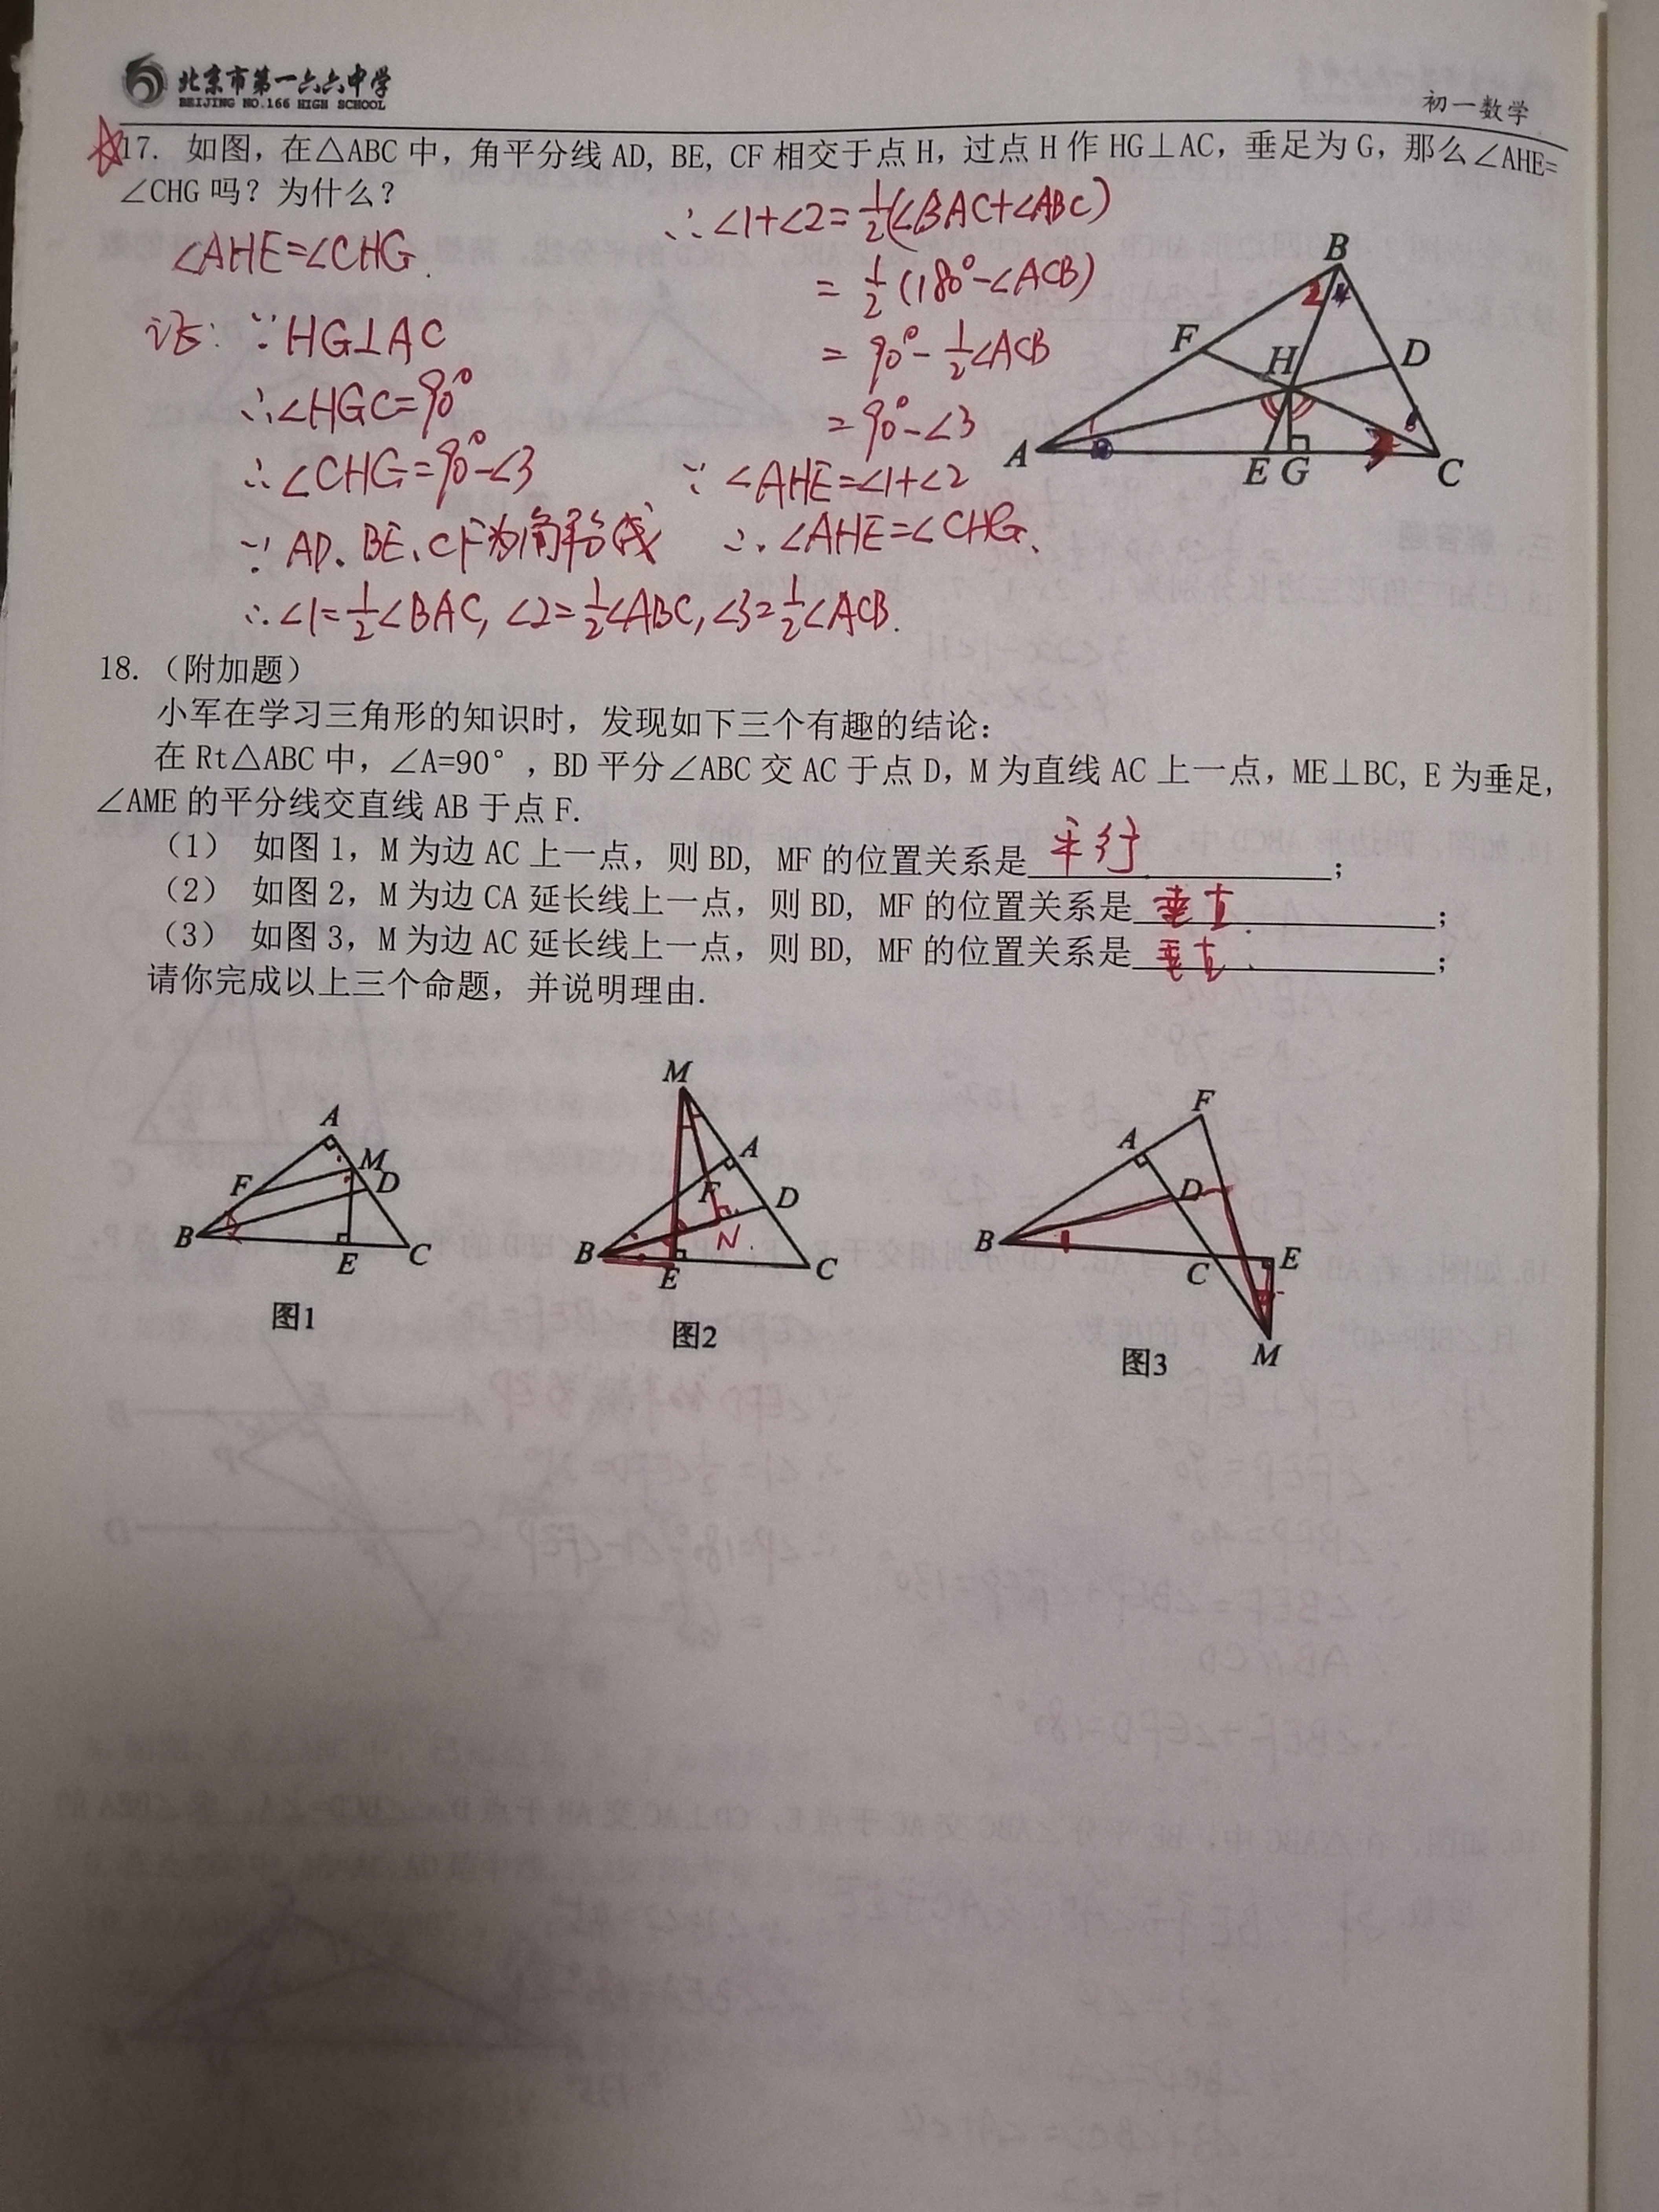 北京市第一六六中学
BEIJING NO.166 HIGH SCHOOL
初一数学
17. 如图，在△ABC 中，角平分线 AD, BE, CF 相交于点 H，过点 H 作 HG⊥AC，垂足为 G，那么∠AHE=
∠CHG 吗？为什么？
∠AHE=∠CHG.
证：∵HG⊥AC
∴∠HGC=90°
∴∠CHG=90°-∠3
∵AD、BE、CF为角平分线
∴∠1=1/2∠BAC, ∠2=1/2∠ABC, ∠3=1/2∠ACB.
∴∠1+∠2=1/2(∠BAC+∠ABC)
=1/2(180°-∠ACB)
=90°-1/2∠ACB
=90°-∠3
∵∠AHE=∠1+∠2
∴∠AHE=∠CHG、
B
2
F
H
D
A
3
E G
C
18.（附加题）
小军在学习三角形的知识时，发现如下三个有趣的结论：
在 Rt△ABC 中，∠A=90°，BD 平分∠ABC 交 AC 于点 D, M 为直线 AC 上一点，ME⊥BC, E 为垂足，
∠AME 的平分线交直线 AB 于点 F.
（1） 如图 1，M 为边 AC 上一点，则 BD, MF 的位置关系是 平行 ；
（2） 如图 2，M 为边 CA 延长线上一点，则 BD, MF 的位置关系是 垂直. ；
（3） 如图 3，M 为边 AC 延长线上一点，则 BD, MF 的位置关系是 垂直. ；
请你完成以上三个命题，并说明理由.
A
M
F
D
B
E
C
图1
M
A
F
D
N
B
E
C
图2
F
A
D
B
C
E
M
图3